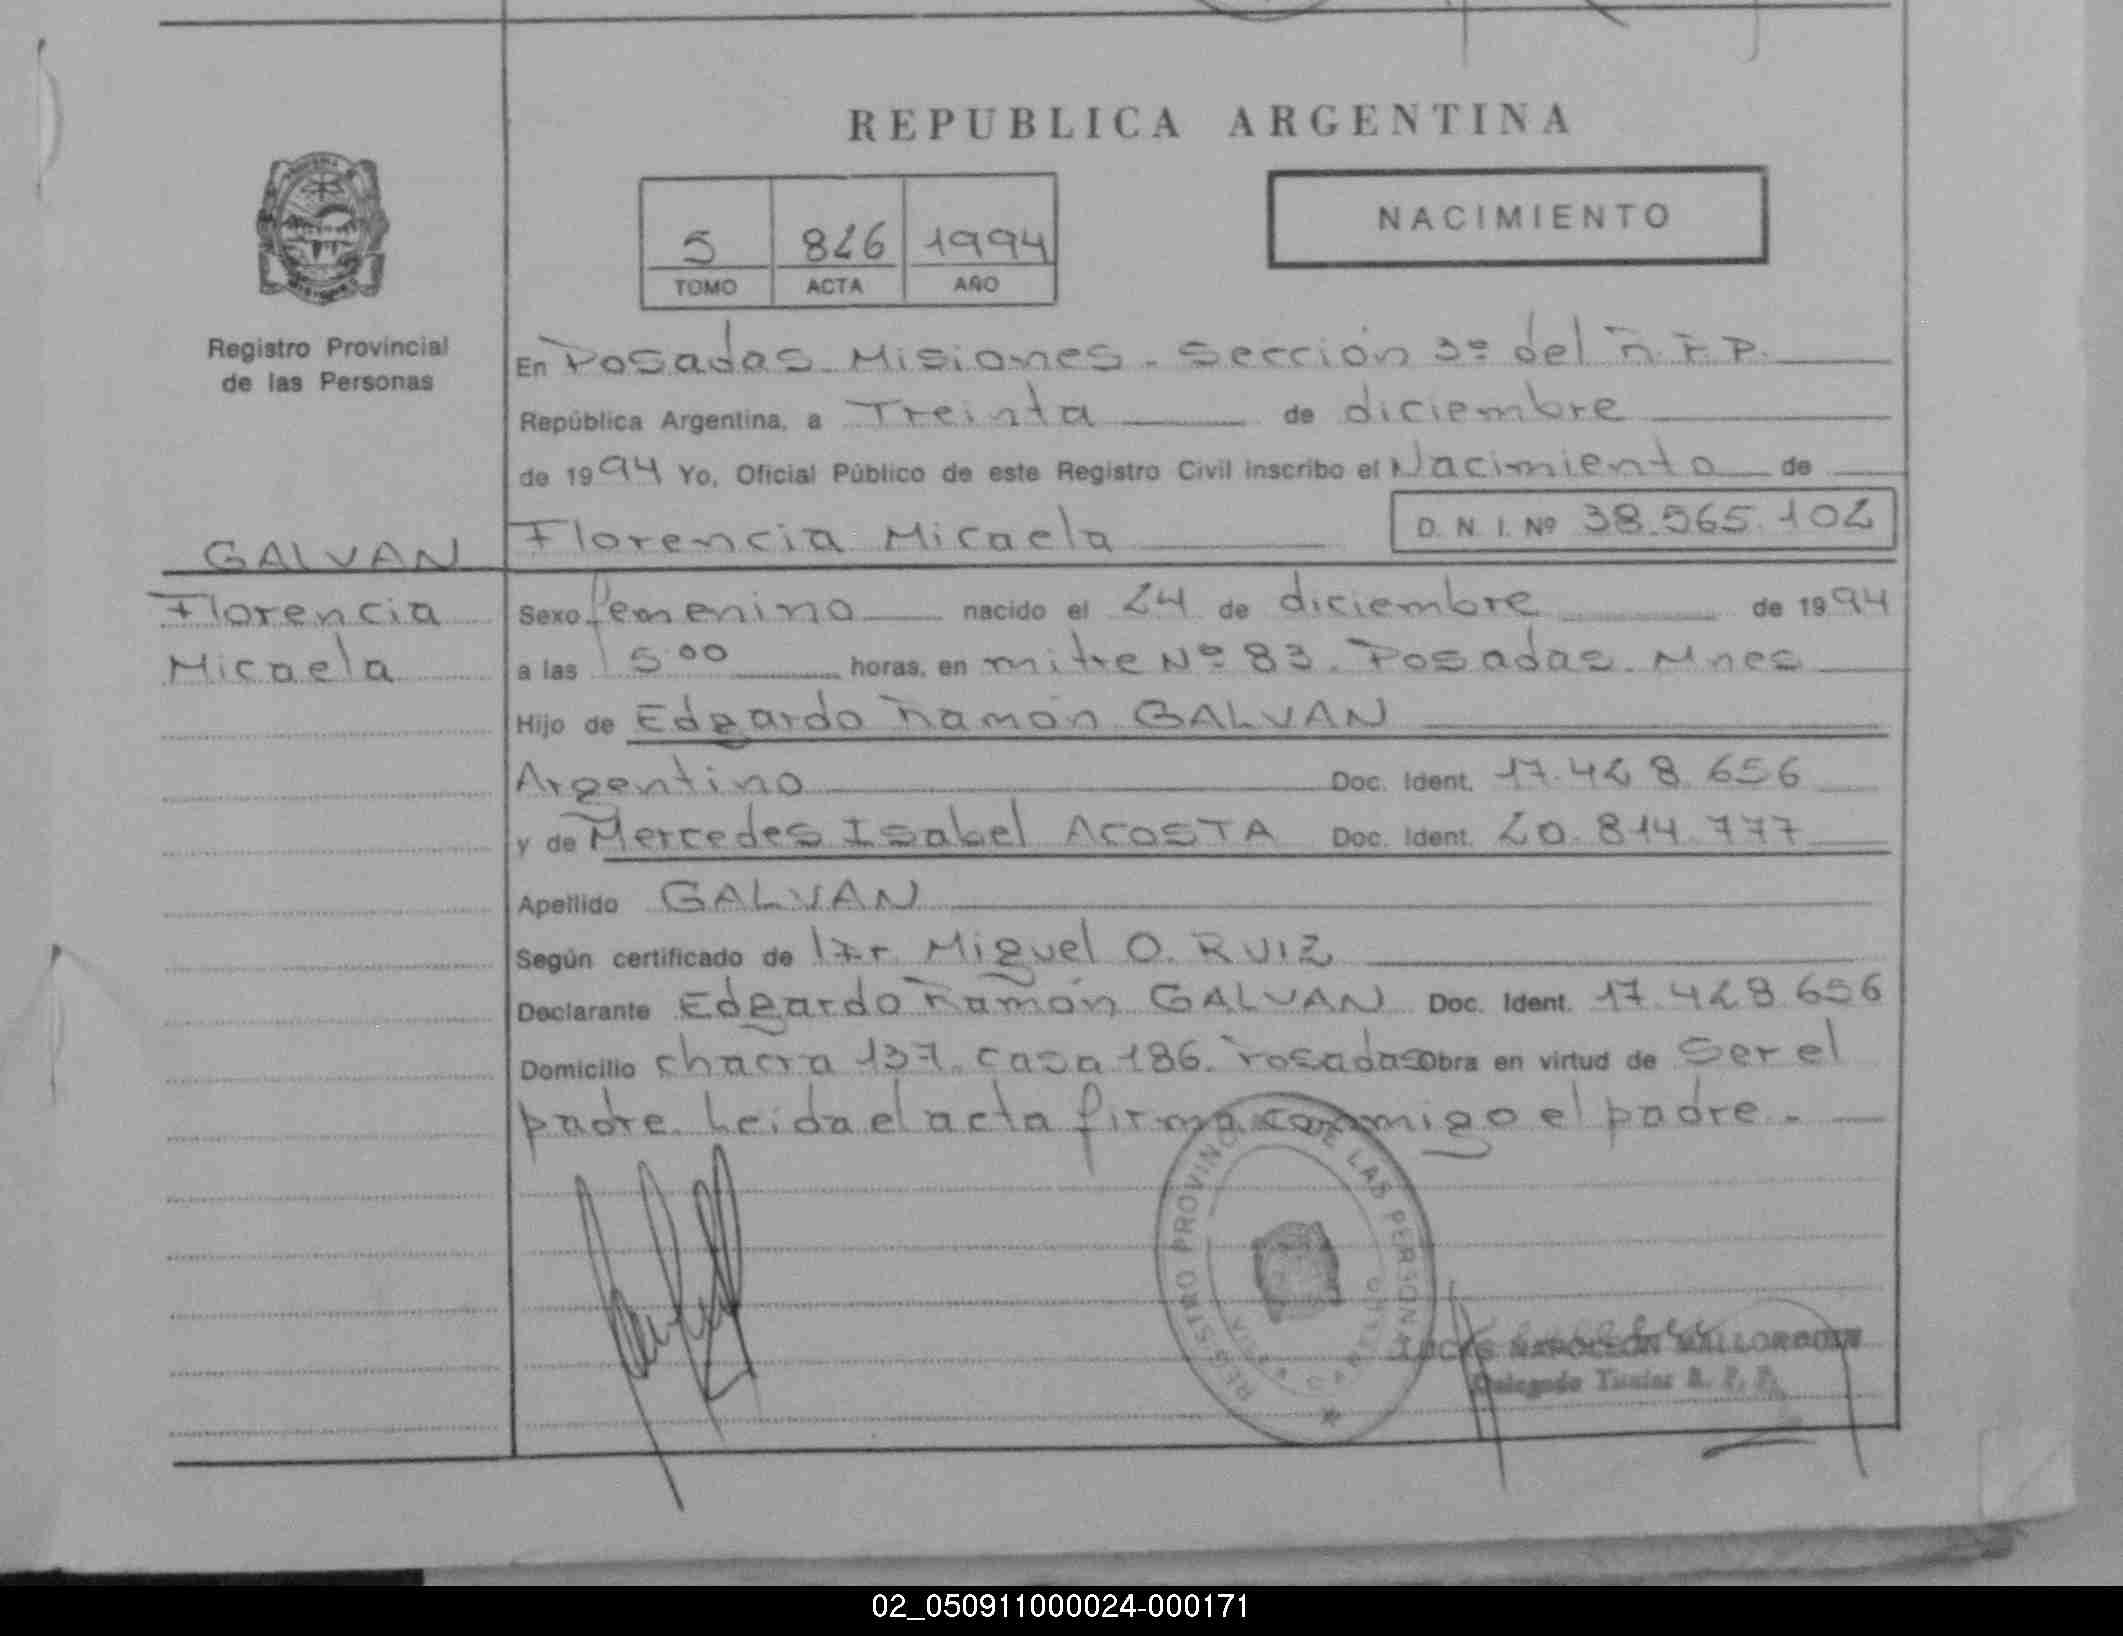 REPUBLICA ARGENTINA
NACIMIENTO
5 826 1994
TOMO ACTA AÑO
Registro Provincial
de las Personas
En Posadas Misiones - Sección 3º del R.P.P.
República Argentina, a Treinta de diciembre
de 1994 Yo, Oficial Público de este Registro Civil inscribo el Nacimiento de
Florencia Micaela D. N. I. Nº 38.565.102
GALVAN
Florencia
Micaela
Sexo femenino nacido el 24 de diciembre de 1994
a las 5 00 horas, en mitre Nº 83. Posadas. Mnes
Hijo de Edgardo Ramón GALVAN
Argentino Doc. Ident. 17.428.656
y de Mercedes Isabel ACOSTA Doc. Ident. 20.814.777
Apellido GALVAN
Según certificado de Dr. Miguel O. RUIZ
Declarante Edgardo Ramón GALVAN Doc. Ident. 17.428.656
Domicilio chacra 137. casa 186. Posadas Obra en virtud de Ser el
padre. Leida el acta firma conmigo el padre.-
REGISTRO PROVINCIAL DE LAS PERSONAS
NAPOLEON
Delegado Titular R. P. P.
02_050911000024-000171